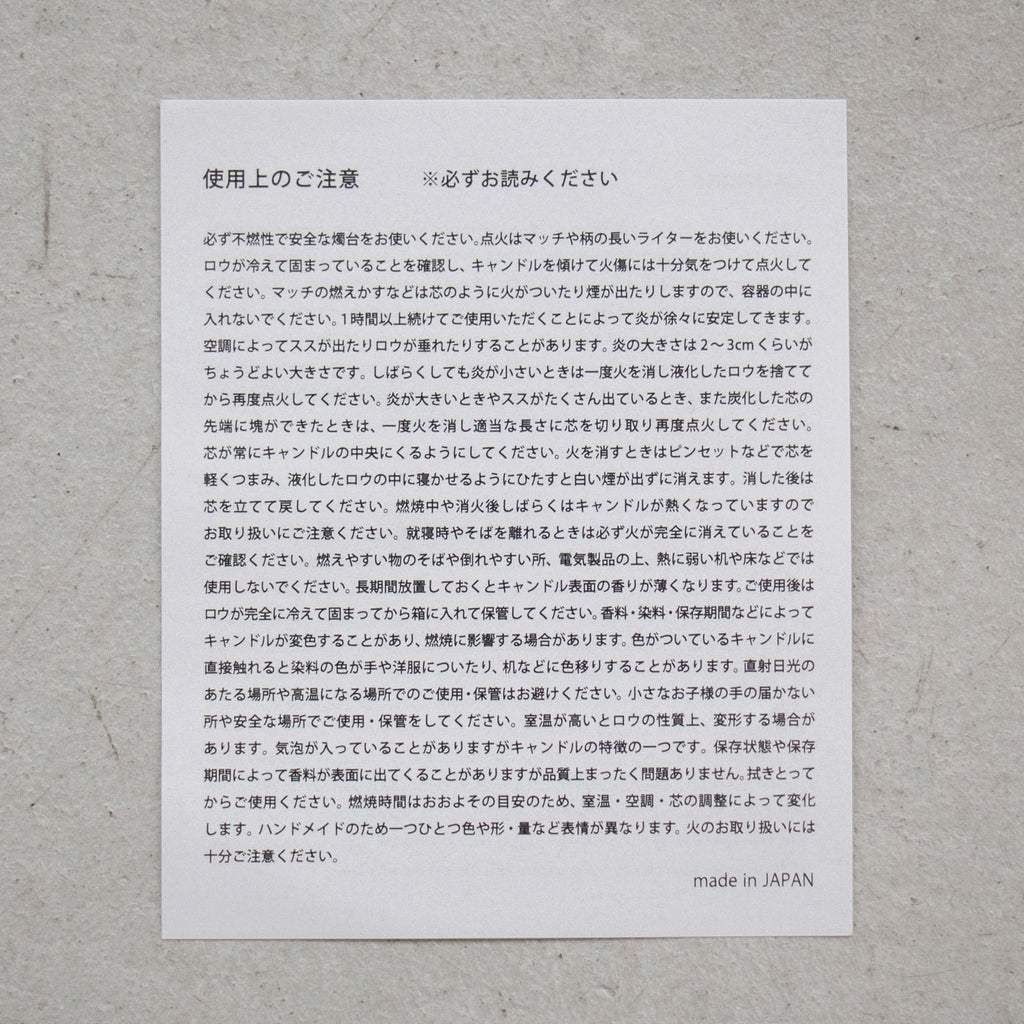 使用上のご注意 ※必ずお読みください
必ず不燃性で安全な燭台をお使いください。点火はマッチや柄の長いライターをお使いください。
ロウが冷えて固まっていることを確認し、キャンドルを傾けて火傷には十分気をつけて点火して
ください。マッチの燃えかすなどは芯のように火がついたり煙が出たりしますので、容器の中に
入れないでください。1時間以上続けてご使用いただくことによって炎が徐々に安定してきます。
空調によってススが出たりロウが垂れたりすることがあります。炎の大きさは2〜3cmくらいが
ちょうどよい大きさです。しばらくしても炎が小さいときは一度火を消し液化したロウを捨てて
から再度点火してください。炎が大きいときやススがたくさん出ているとき、また炭化した芯の
先端に塊ができたときは、一度火を消し適当な長さに芯を切り取り再度点火してください。
芯が常にキャンドルの中央にくるようにしてください。火を消すときはピンセットなどで芯を
軽くつまみ、液化したロウの中に寝かせるようにひたすと白い煙が出ずに消えます。消した後は
芯を立てて戻してください。燃焼中や消火後しばらくはキャンドルが熱くなっていますので
お取り扱いにご注意ください。就寝時やそばを離れるときは必ず火が完全に消えていることを
ご確認ください。燃えやすい物のそばや倒れやすい所、電気製品の上、熱に弱い机や床などでは
使用しないでください。長期間放置しておくとキャンドル表面の香りが薄くなります。ご使用後は
ロウが完全に冷えて固まってから箱に入れて保管してください。香料・染料・保存期間などによって
キャンドルが変色することがあり、燃焼に影響する場合があります。色がついているキャンドルに
直接触れると染料の色が手や洋服についたり、机などに色移りすることがあります。直射日光の
あたる場所や高温になる場所でのご使用・保管はお避けください。小さなお子様の手の届かない
所や安全な場所でご使用・保管をしてください。室温が高いとロウの性質上、変形する場合が
あります。気泡が入っていることがありますがキャンドルの特徴の一つです。保存状態や保存
期間によって香料が表面に出てくることがありますが品質上まったく問題ありません。拭きとって
からご使用ください。燃焼時間はおおよその目安のため、室温・空調・芯の調整によって変化
します。ハンドメイドのため一つひとつ色や形・量など表情が異なります。火のお取り扱いには
十分ご注意ください。
made in JAPAN